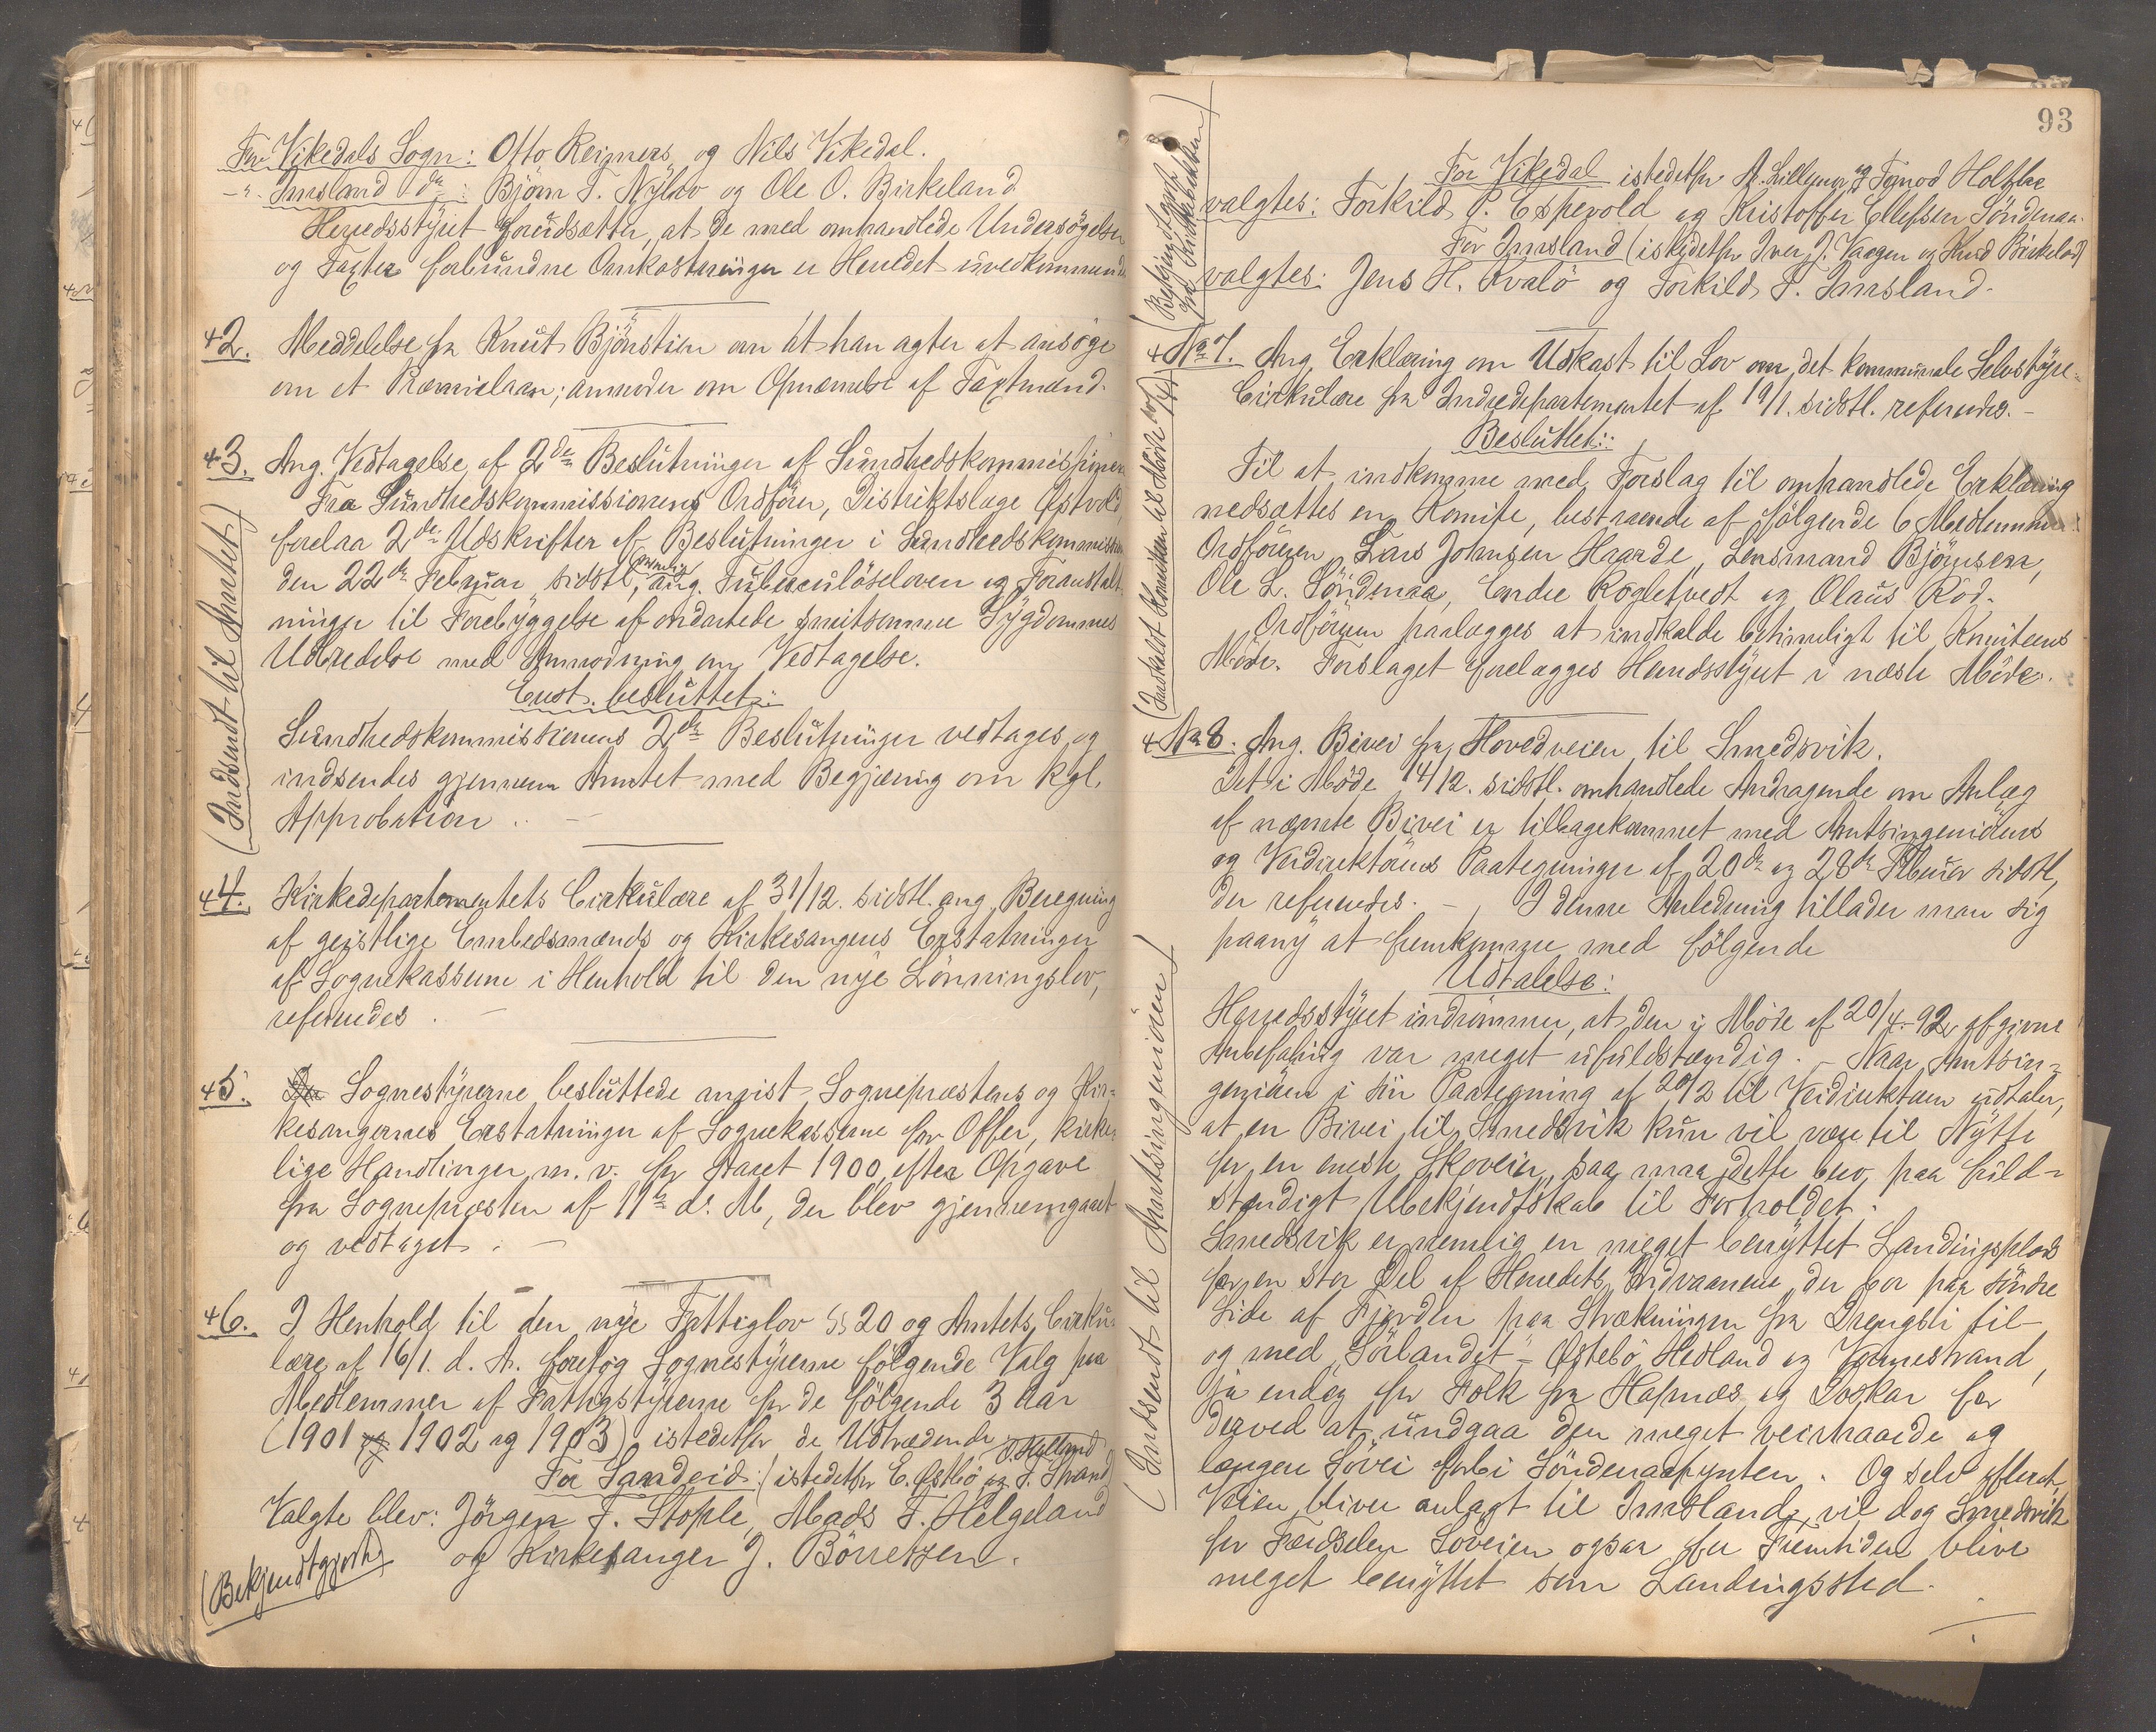 For Vikedals Sogn: Otto Reigners og Nils Vikedal.
-"- Imsland do: Bjørn T. Nyløv og Ole O. Birkeland.
Herredsstyret forudsætter, at de med omhandlede Undersøgelser
og Taxter forbundne Omkostninger er Herredet uvedkommende
42. Meddelelse fra Knut Bjønstien om at han agter at ansøge
om et Præmielaan; anmoder om Opnævnelse af Taxtmænd.
43. Ang. Vedtagelse af 2de Beslutninger af Sundhedskommissionen
Fra Sundhedskommissionens Ordfører, Distriktslæge Østvold,
forelaa 2de Udskrifter af Beslutninger i Sundhedskommission
den 22de Februar sidstl, nemlig ang. Tuberculøseloven og Foranstalt-
ninger til Forebyggelse af ondartede smitsomme Sygdommes
Udbredelse med Anmodning om Vedtagelse.
Enst. besluttet:
Sundhedskommissionens 2de Beslutninger vedtages og
indsendes gjennem Amtet med Begjæring om kgl.
Approbation. -
(Indsendt til Amtet)
44. Kirkedepartementets Cirkulære af 31/12. sidstl. ang. Beregning
af geistlige Embedsmænds og Kirkesangeres Erstatninger
af Sognekasserne i Henhold til den nye Lønningslov,
refereredes. -
45. Sognestyrerne besluttede angist Sognepræstens og Kir-
kesangernes Erstatninger af Sognekasserne for Offer, kirke-
lige Handlinger m. v. for Aaret 1900 efter Opgave
fra Sognepræsten af 11te d. M, der blev gjennemgaaet
og vedtaget. -
46. I Henhold til den nye Fattiglov §§ 20 og Amtets Cirku-
lære af 16/1. d. A. foretog Sognestyrerne følgende Valg paa
Medlemmer af Fattigstyrerne for de følgende 3 Aar
(1901 og 1902 og 1903) istedetfor de Udtrædende
For Sandeid: (istedetfor E. Østbø og T. Strand
Valgte blev: Jörgen T. Stople, Mads T. Helgeland
og Kirkesanger J. Börretzen.
(Bekjendtgjort)
93
For Vikedal istedetfor A. Lillynn og Tomod Holtlae
valgtes: Torkild P. Espevold og Kristoffer Ellefsen Söndenaa.
For Imsland (istedetfor Iver J. Vaagen og Knud Birkeland)
valgtes: Jens H. Kvalö og Torkild T. Imsland.
No 7. Ang. Erklæring om Udkast til Lov om det kommunale Selvstyre.
Cirkulære fra Indredepartementet af 19/1. sidstl. refereredes. -
Besluttet:
Til at indkomme med Forslag til omhandlede Erklæring
nedsættes en Komite, bestaaende af følgende 6 Medlemmer:
Ordføreren Lars Johnsen Haarde, Lensmand Björnsen,
Ole L. Söndenaa, Endre Rogletvedt og Olaus Röd.
Ordføreren paalægges at indkalde betimeligt til Komiteens
Møde. Forslaget forelægges Herredsstyret i næste Møde.
(Indkaldt Komiteen til Møde
No 8. Ang. Bivei fra Hovedveien til Smedsvik.
Det i Møde 14/12. sidstl. omhandlede Andragende om Anlæg
af nævnte Bivei er tilbagekommet med Amtsingeniørens
og Veidirektørens Paategninger af 20de og 28de Februar sidstl,
der refereredes. - I denne Anledning tillader man sig
paany at fremkomme med følgende
Udtalelse:
Herredsstyret indrømmer, at den i Møde af 20/4-92 afgivne
Anbefaling var meget ufuldstændig. - Naar Amtsin-
geniøren i sin Paategning af 20/2 til Veidirektøren udtaler,
at en Bivei til Smedsvik kun vil være til Nytte
for en eneste Skoveier, saa maa dette bero paa fuld-
stændigt Ubekjendtskab til Forholdet.
Smedsvik er nemlig en meget benyttet Landingsplads
for en stor Del af Herredets Indvaanere, der bor paa søndre
Side af Fjorden paa Strækningen fra Drengsli til
og med "Sørlandet" - Østebø, Hedland og Vormestrand,
ja endog for Folk fra Hapnes og Dokar for
derved at undgaa den meget veirhaarde og
længere Søvei forbi Söndenaapynten. Og selv efterat
Veien bliver anlagt til Imsland, vil dog Smedsvik
for Færdselen Soveien ogsaa for Fremtiden blive
meget benyttet som Landingssted.
(Indsendt til Amtsingeniøren)